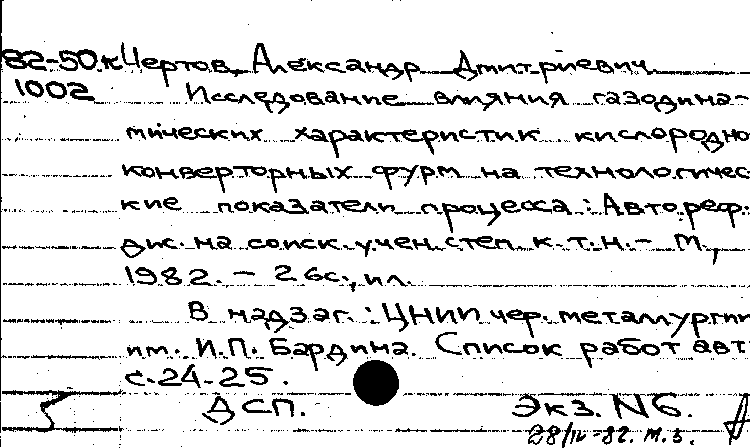 82-50.к Чертов, Александр Дмитриевич
1002 Исследование влияния газодина-
мических характеристик кислородно
конверторных фурм на технологичес
кие показатели процесса : Автореф.
дис. на соиск. учен. степ. к.т.н. - М.,
1982. - 26с., ил.
В надзаг.: ЦНИИ чер. металлургии
им. И.П. Бардина. Список работ авт
с.24-25.
ДСП. Экз. N6.
28/IV-82. М.З.